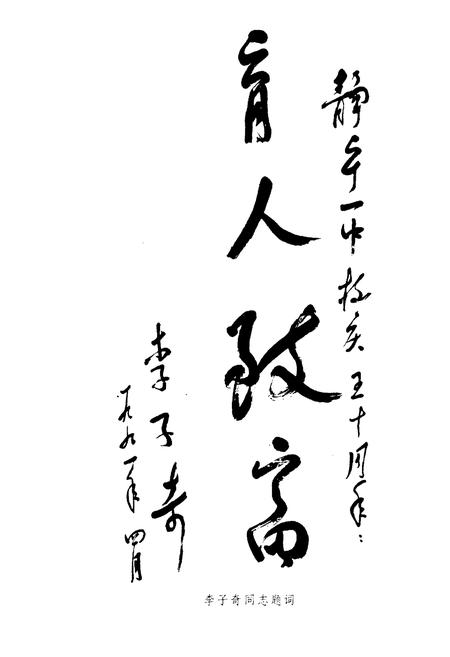 静宁一中校庆五十周年：
育人致富
李子奇
一九九一年四月
李子奇同志题词